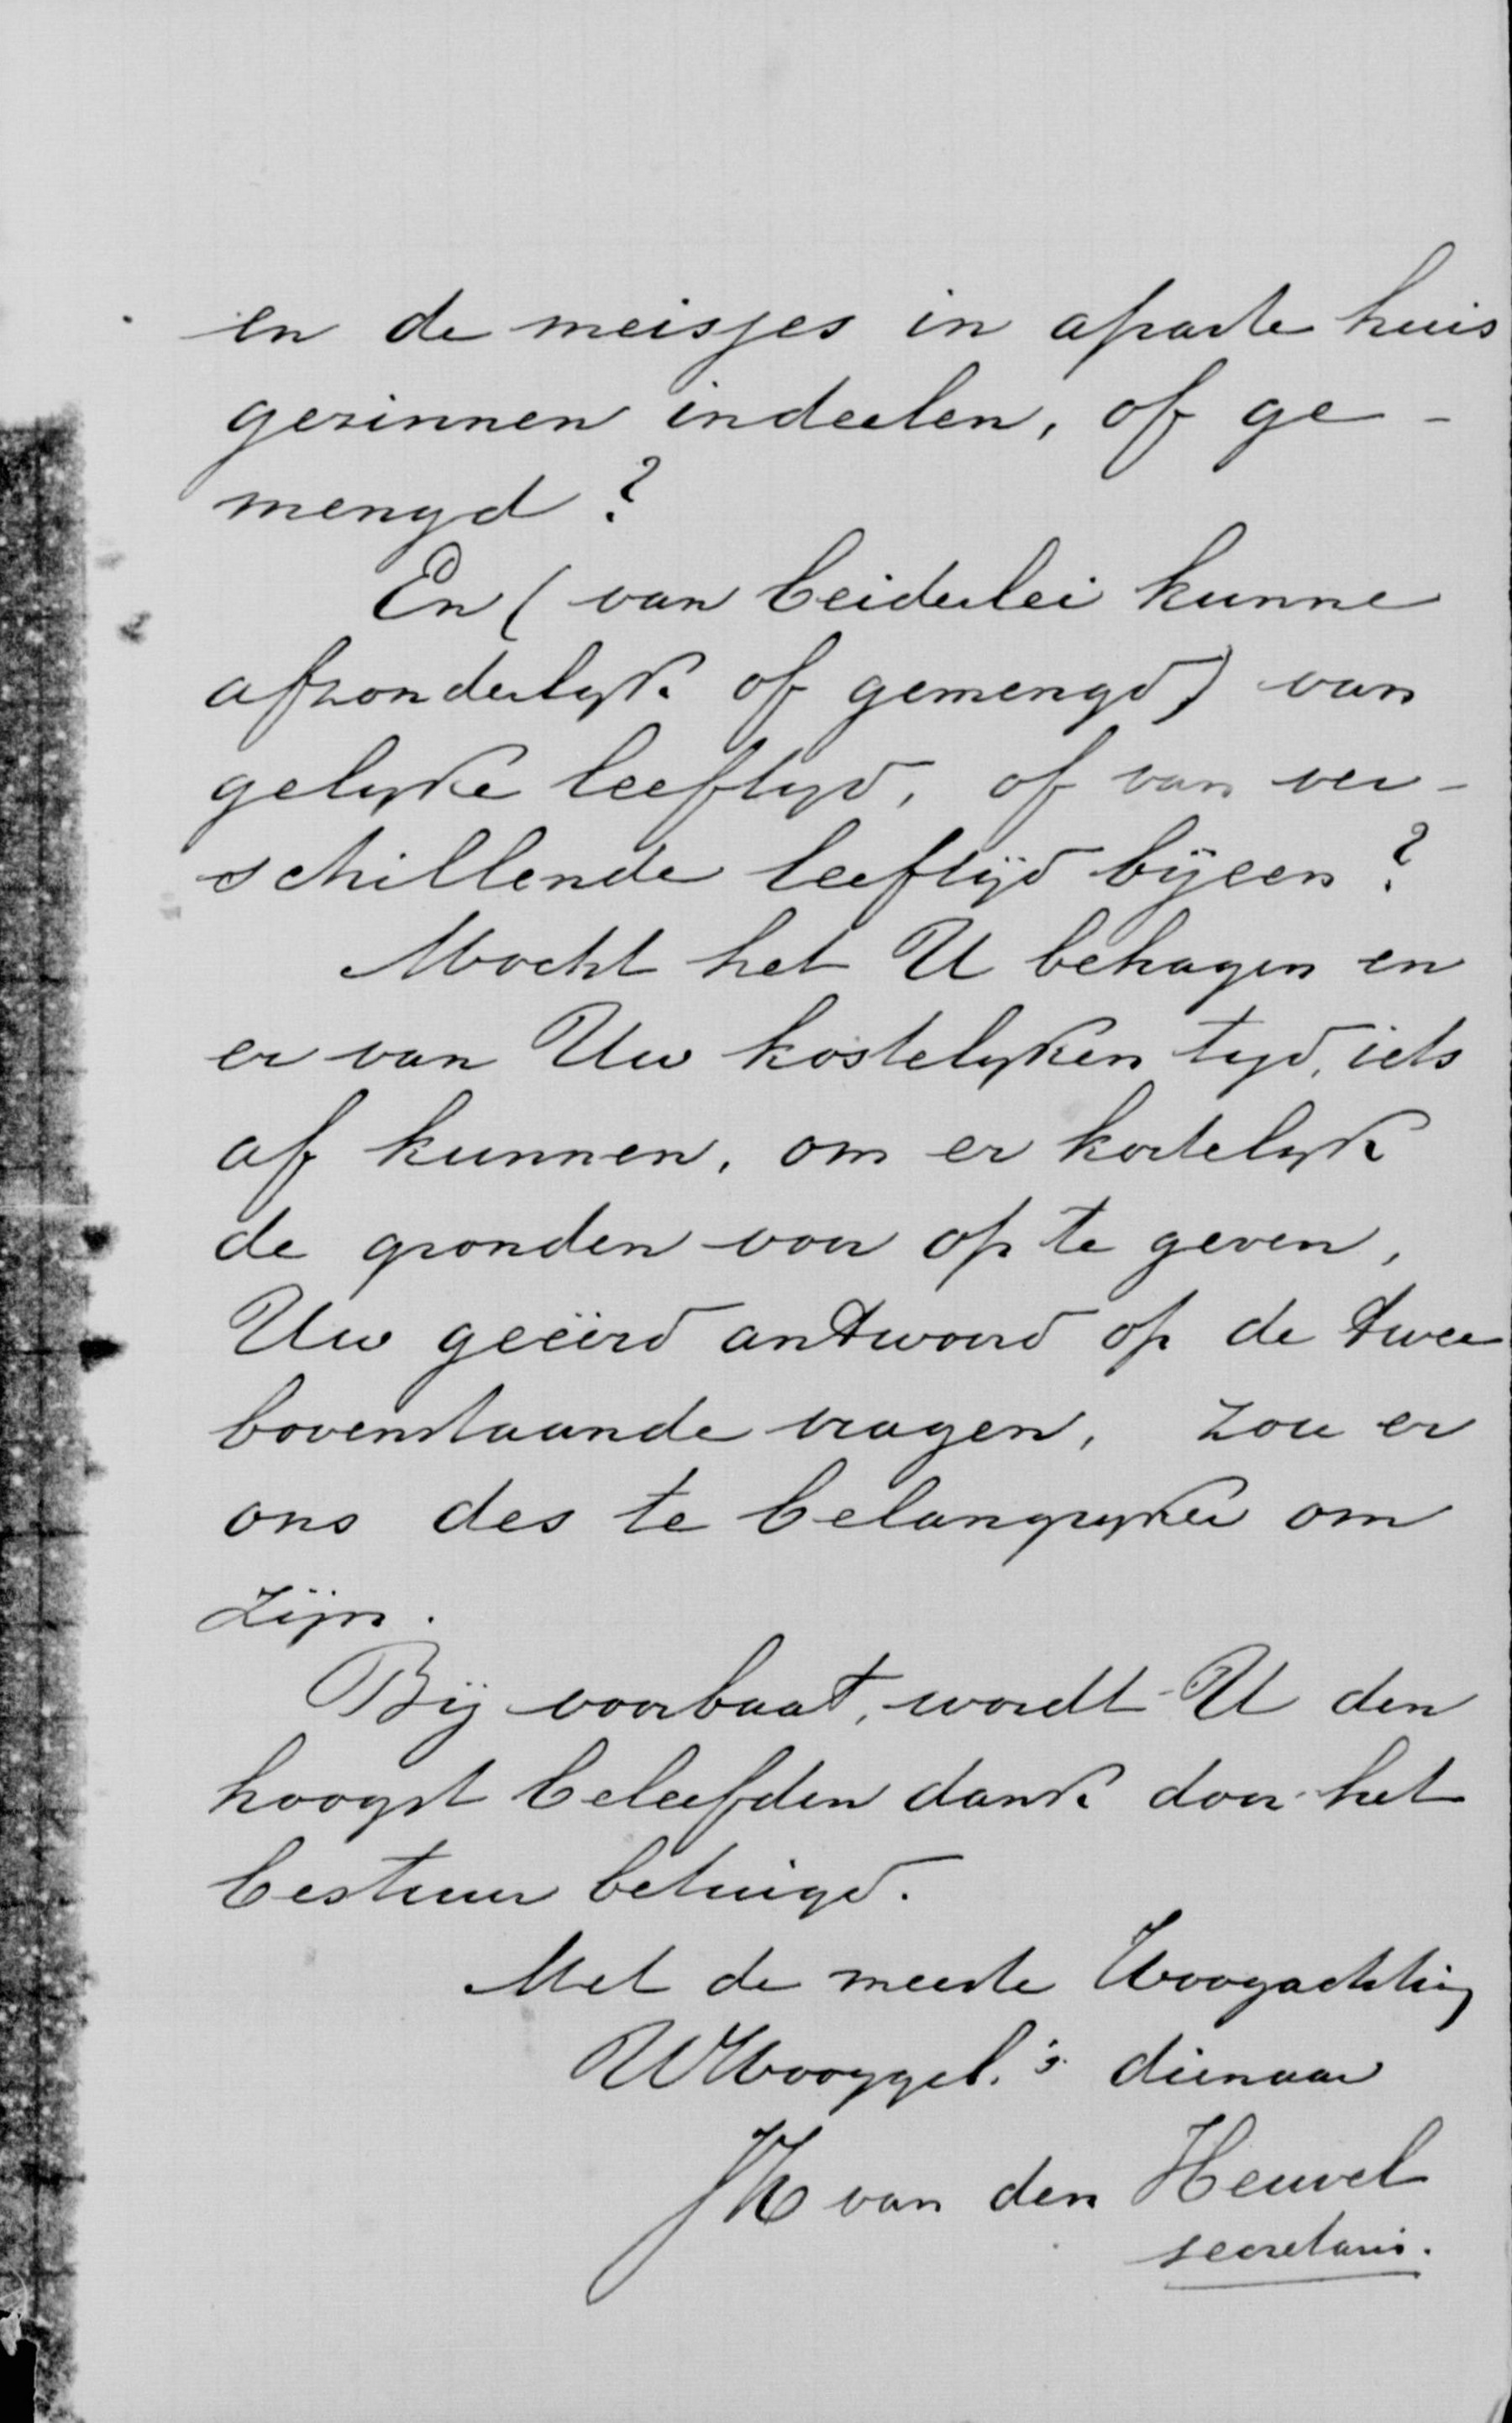 en de meisjes in aparte huis
gezinnen indeelen, of ge-
mengd?
En (van beiderlei kunne
afzonderlyk of gemengd) van
gelyke leeftyd, of van ver-
schillende leeftijd bijeen?
Mocht het U behagen en
er van Uw kostelyken tyd, iets
af kunnen, om er kortelyk
de gronden voor op te geven,
Uw geëerd antwoord op de twee
bovenstaande vragen, zou er
ons des te belangryker om
zijn.
Bij voorbaat, wordt U den
hoogst beleefden dank door het
bestuur betuigd.
Met de meeste Hoogachting
UHooggel.'s dienaar
JH van den Heuvel
secretaris.